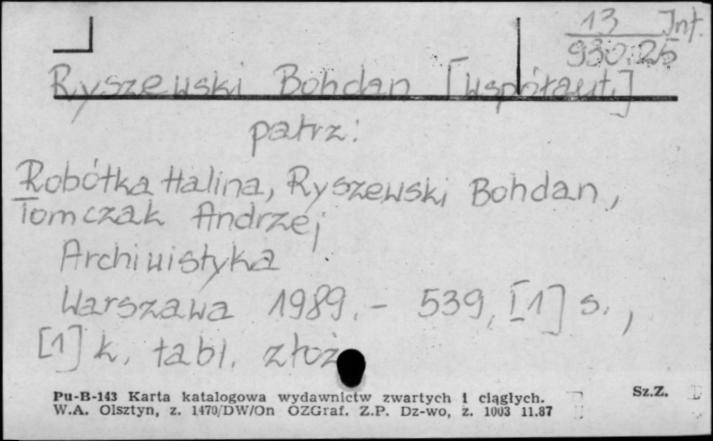 13 Inf.
930.25
Ryszewski Bohdan [współaut.]
patrz:
Robótka Halina, Ryszewski Bohdan,
Tomczak Andrzej
Archiwistyka
Warszawa 1989. - 539, [1] s.,
[1] k. tabl. złoż
Pu-B-143 Karta katalogowa wydawnictw zwartych i ciągłych. Sz.Z.
W.A. Olsztyn, z. 1470/DW/On OZGraf. Z.P. Dz-wo, z. 1003 11.87